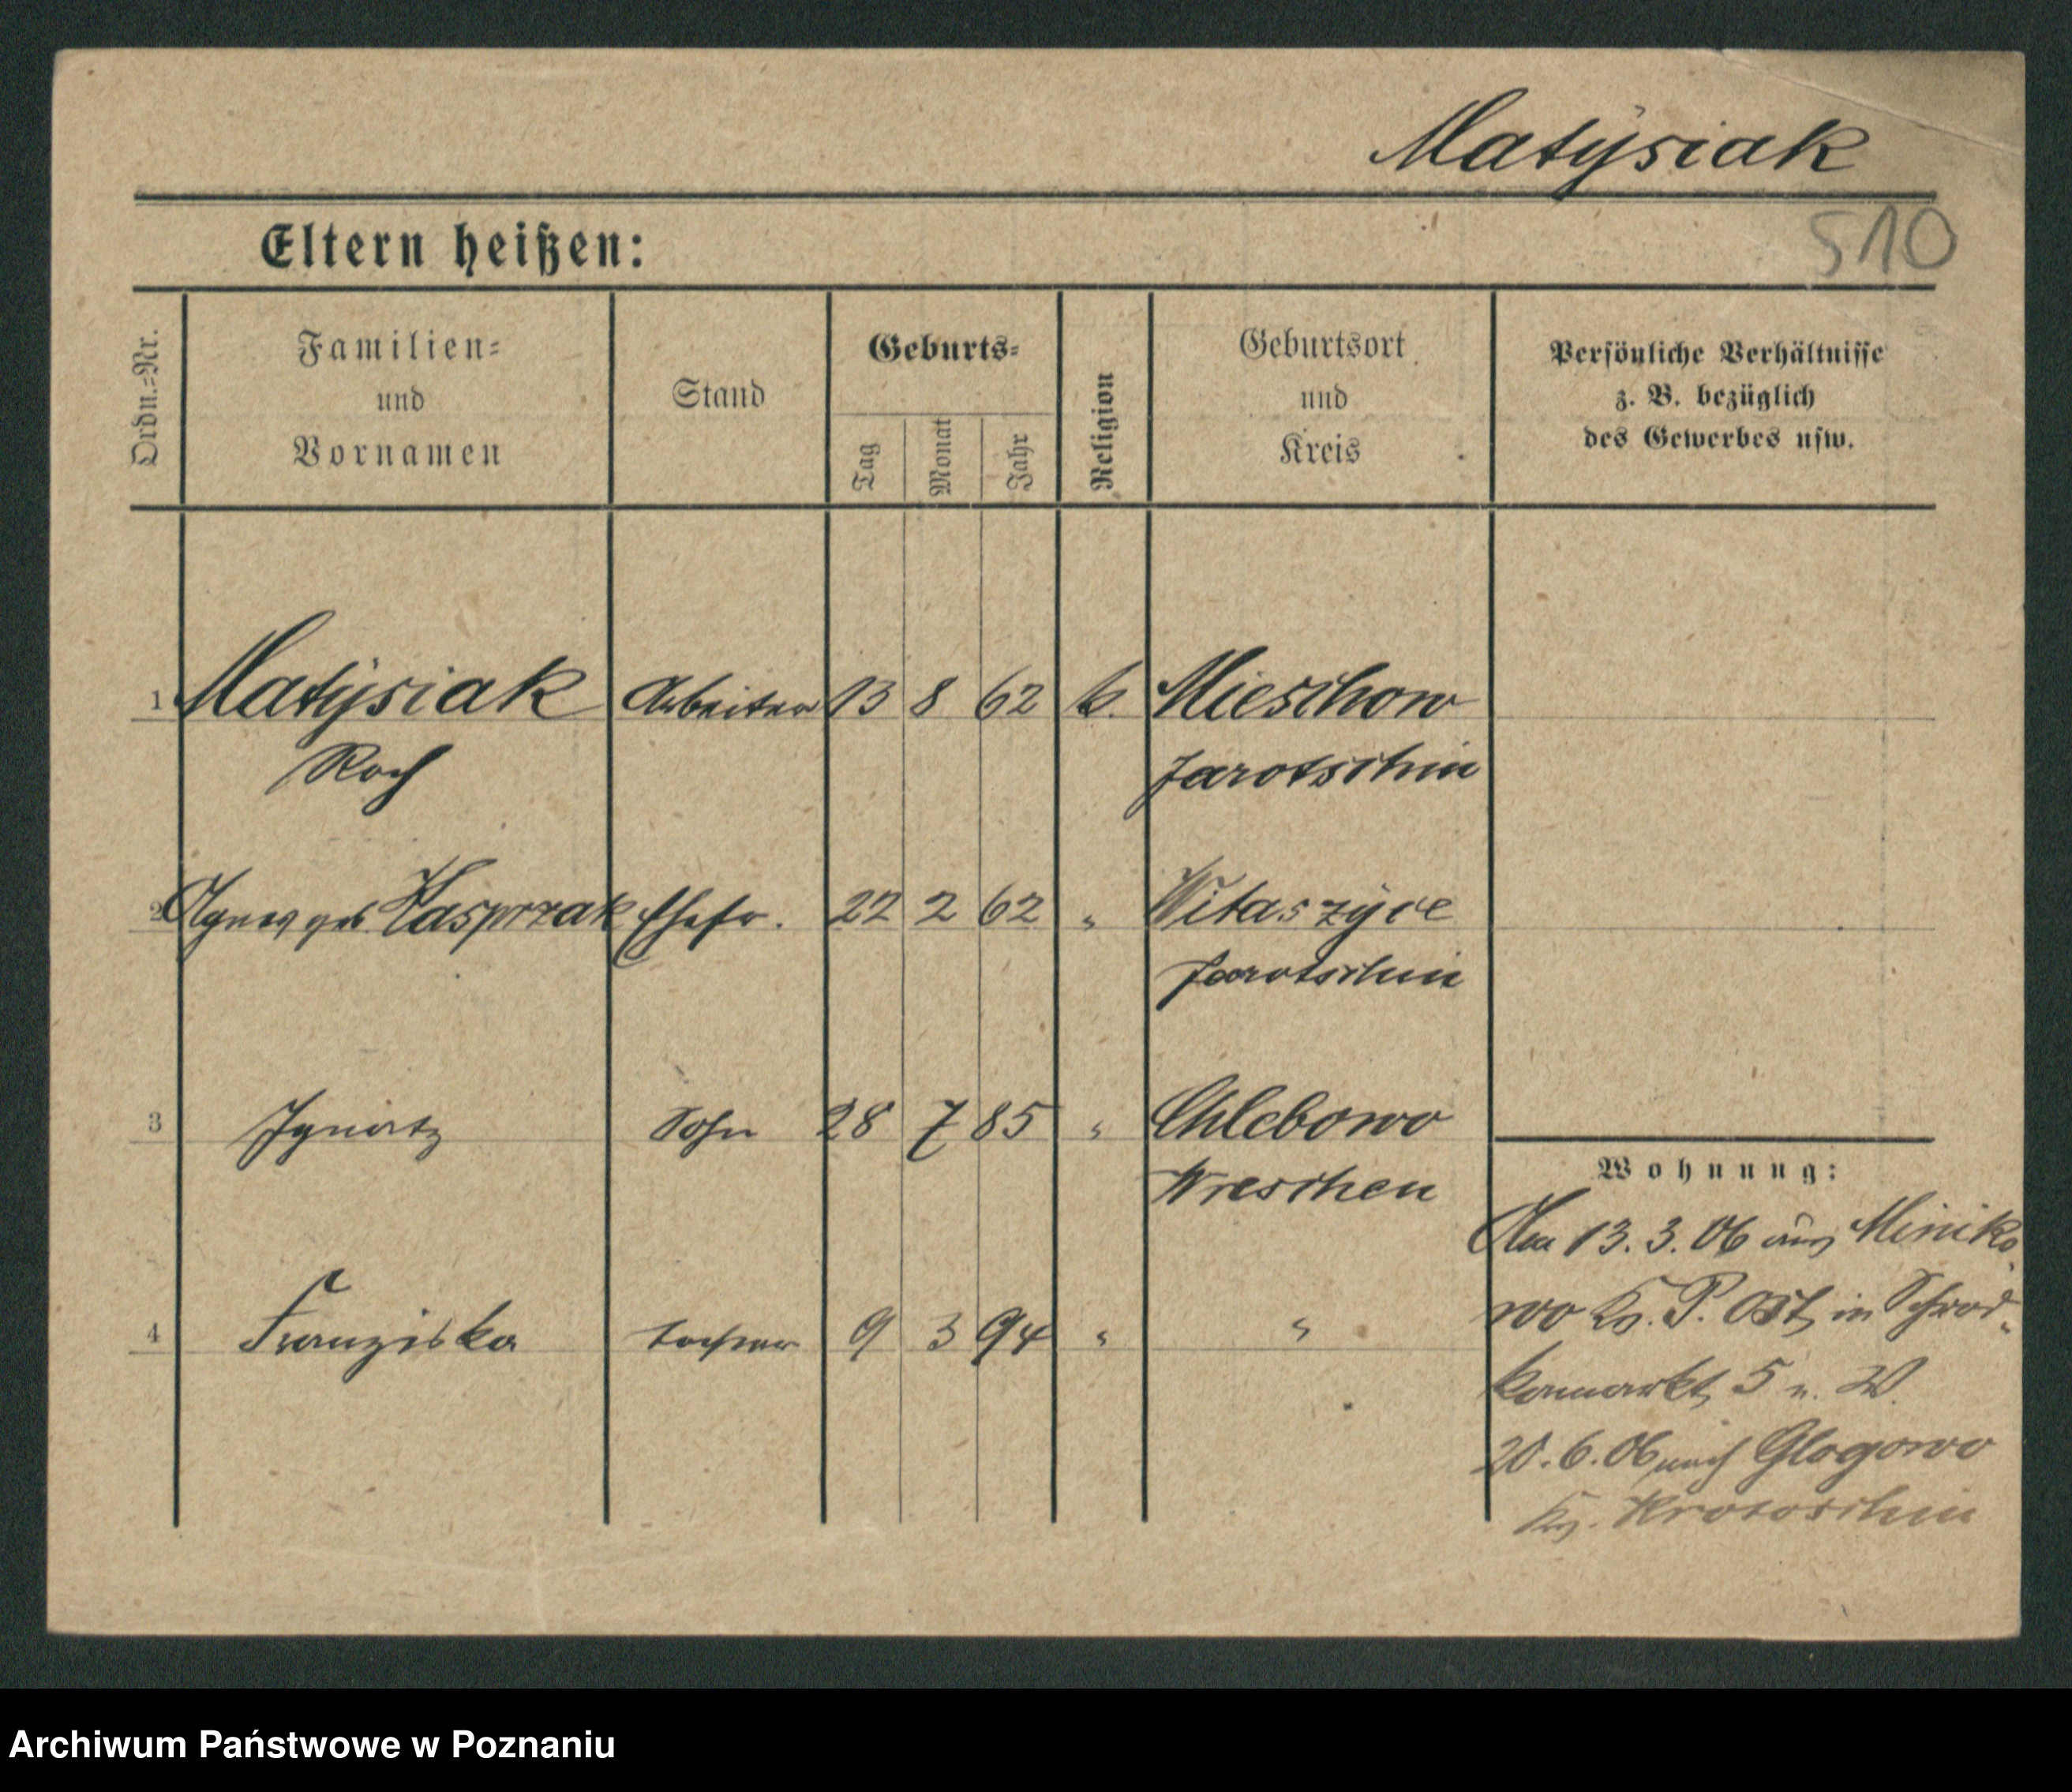 Matÿsiak
510
Eltern heißen:
Ordn.-Nr.
Familien-
und
Vornamen
Stand
Geburts-
Tag
Monat
Jahr
Religion
Geburtsort
und
Kreis
Persönliche Verhältnisse
z. B. bezüglich
des Gewerbes usw.
1 Matÿsiak Arbeiter 13 8 62 k. Mieschow
Roch Jarotschin
2 Agnes geb Kasprzak Ehefr. 22 2 62 " Witaszÿce
Jarotschin
3 Ignatz Sohn 28 7 85 " Chlebowo
Wreschen
4 Franziska Tochter 9 3 94 " "
Wohnung:
Am 13.3.06 aus Miniko-
wo Kr. P. Ost, in Schrod-
kamarkt 5 n. W.
20.6.06 nach Glogowo
Kr. Krotoschin
Archiwum Państwowe w Poznaniu